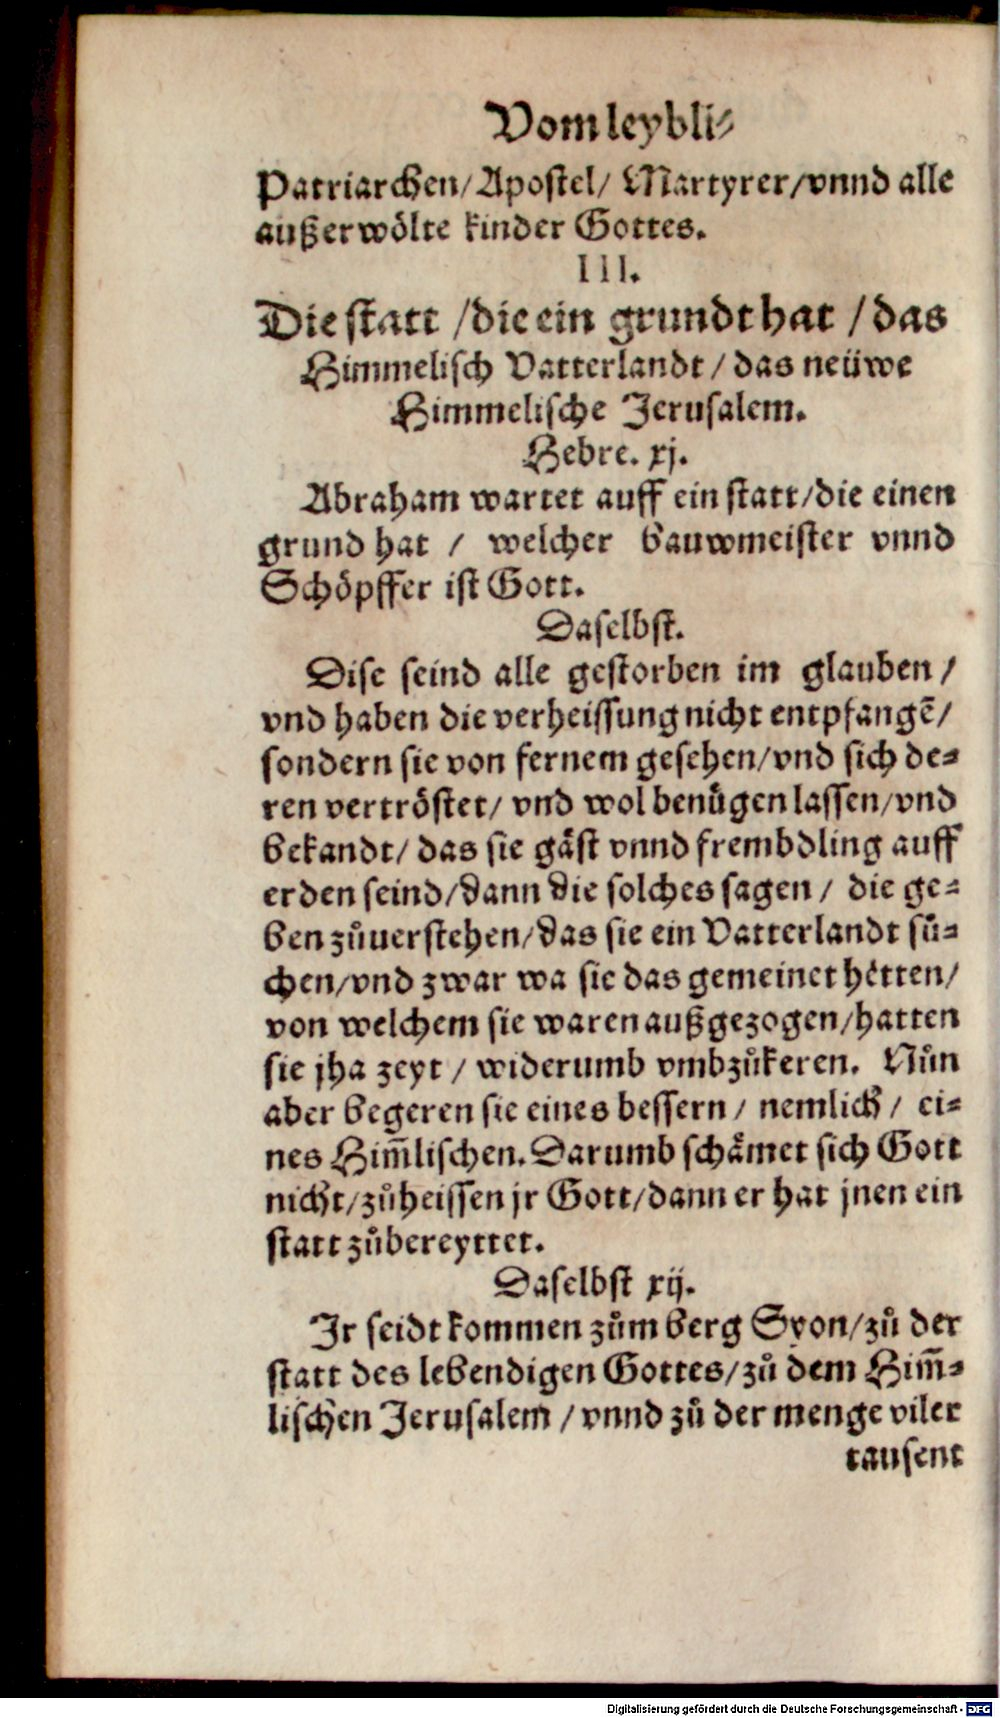 Vom leybli⸗
Patriarchen/ Apostel/ Martyrer/ vnnd alle
außerwölte kinder Gottes.
III.
Die statt / die ein grundt hat / das
Himmelisch Vatterlandt / das neüwe
Himmelische Jerusalem.
Hebre. xj.
Abraham wartet auff ein statt/ die einen
grund hat / welcher bauwmeister vnnd
Schöpffer ist Gott.
Daselbst.
Dise seind alle gestorben im glauben /
vnd haben die verheissung nicht entpfangẽ/
sondern sie von fernem gesehen/ vnd sich de⸗
ren vertröstet/ vnd wol benůgen lassen/ vnd
bekandt/ das sie gäst vnnd frembdling auff
erden seind/ dann die solches sagen / die ge⸗
ben zůuerstehen/ das sie ein Vatterlandt sů⸗
chen/ vnd zwar wa sie das gemeinet hetten/
von welchem sie waren außgezogen/ hatten
sie jha zeyt / widerumb vmbzůkeren. Nůn
aber begeren sie eines bessern / nemlich / ei⸗
nes Him̃lischen. Darumb schämet sich Gott
nicht/ zůheissen jr Gott/ dann er hat jnen ein
statt zůbereyttet.
Daselbst xij.
Jr seidt kommen zům berg Syon/ zů der
statt des lebendigen Gottes/ zů dem Him̃⸗
lischen Jerusalem / vnnd zů der menge viler
tausent
Digitalisierung gefördert durch die Deutsche Forschungsgemeinschaft - DFG